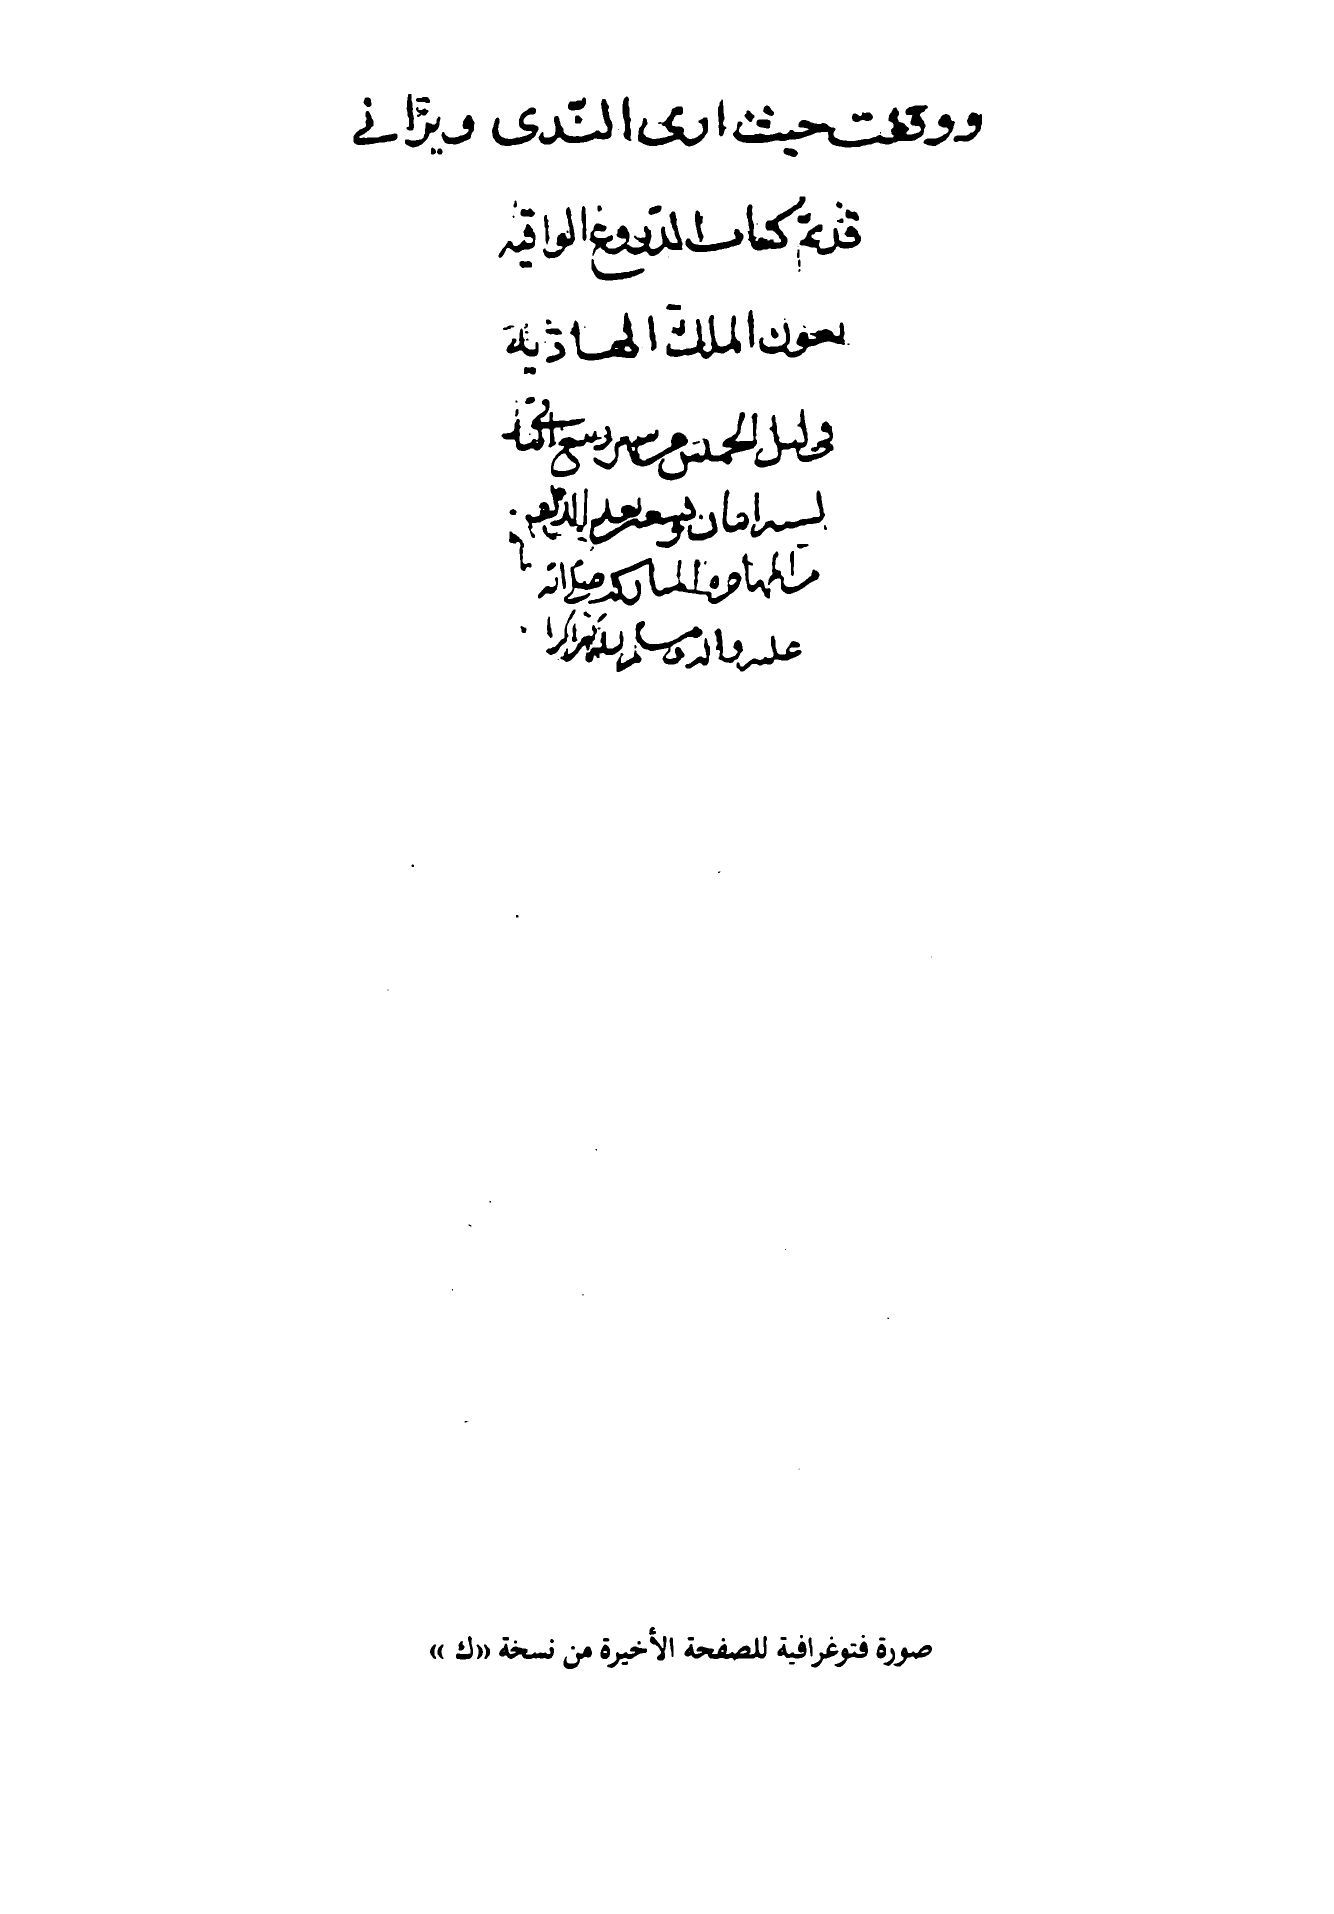 ووقفت حيث ارى الندى ويراني
قد تم كتاب الدروع الواقيه
بعون الملك الهاديه
في ليل الخميس من شهر ربيع الثاني
لسنه اثمان وسعين بعد الالف
من المهاجره المباركه صلى الله
عليه واله وسلم
صورة فتوغرافية للصفحة الأخيرة من نسخة «ك»